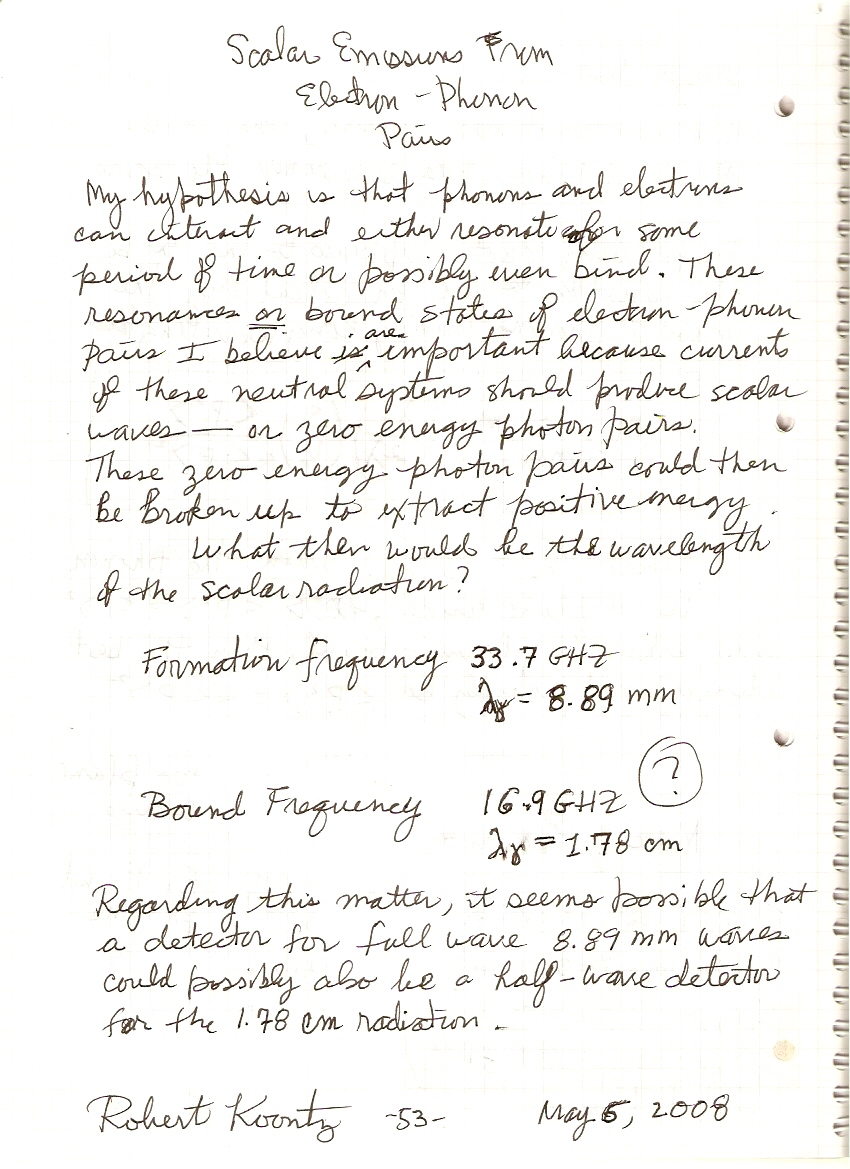 Scalar Emissions From
Electron - Phonon
Pairs
My hypothesis is that phonons and electrons
can interact and either resonate for some
period of time or possibly even bind. These
resonances or bound states of electron-phonon
pairs I believe is are important because currents
of these neutral systems should produce scalar
waves — or zero energy photon pairs.
These zero energy photon pairs could then
be broken up to extract positive energy.
What then would be the wavelength
of the scalar radiation?
Formation frequency 33.7 GHZ
λγ = 8.89 mm
Bound Frequency 16.9 GHZ ?
λγ = 1.78 cm
Regarding this matter, it seems possible that
a detector for full wave 8.89 mm waves
could possibly also be a half-wave detector
for the 1.78 cm radiation.
Robert Koontz -53- May 5, 2008